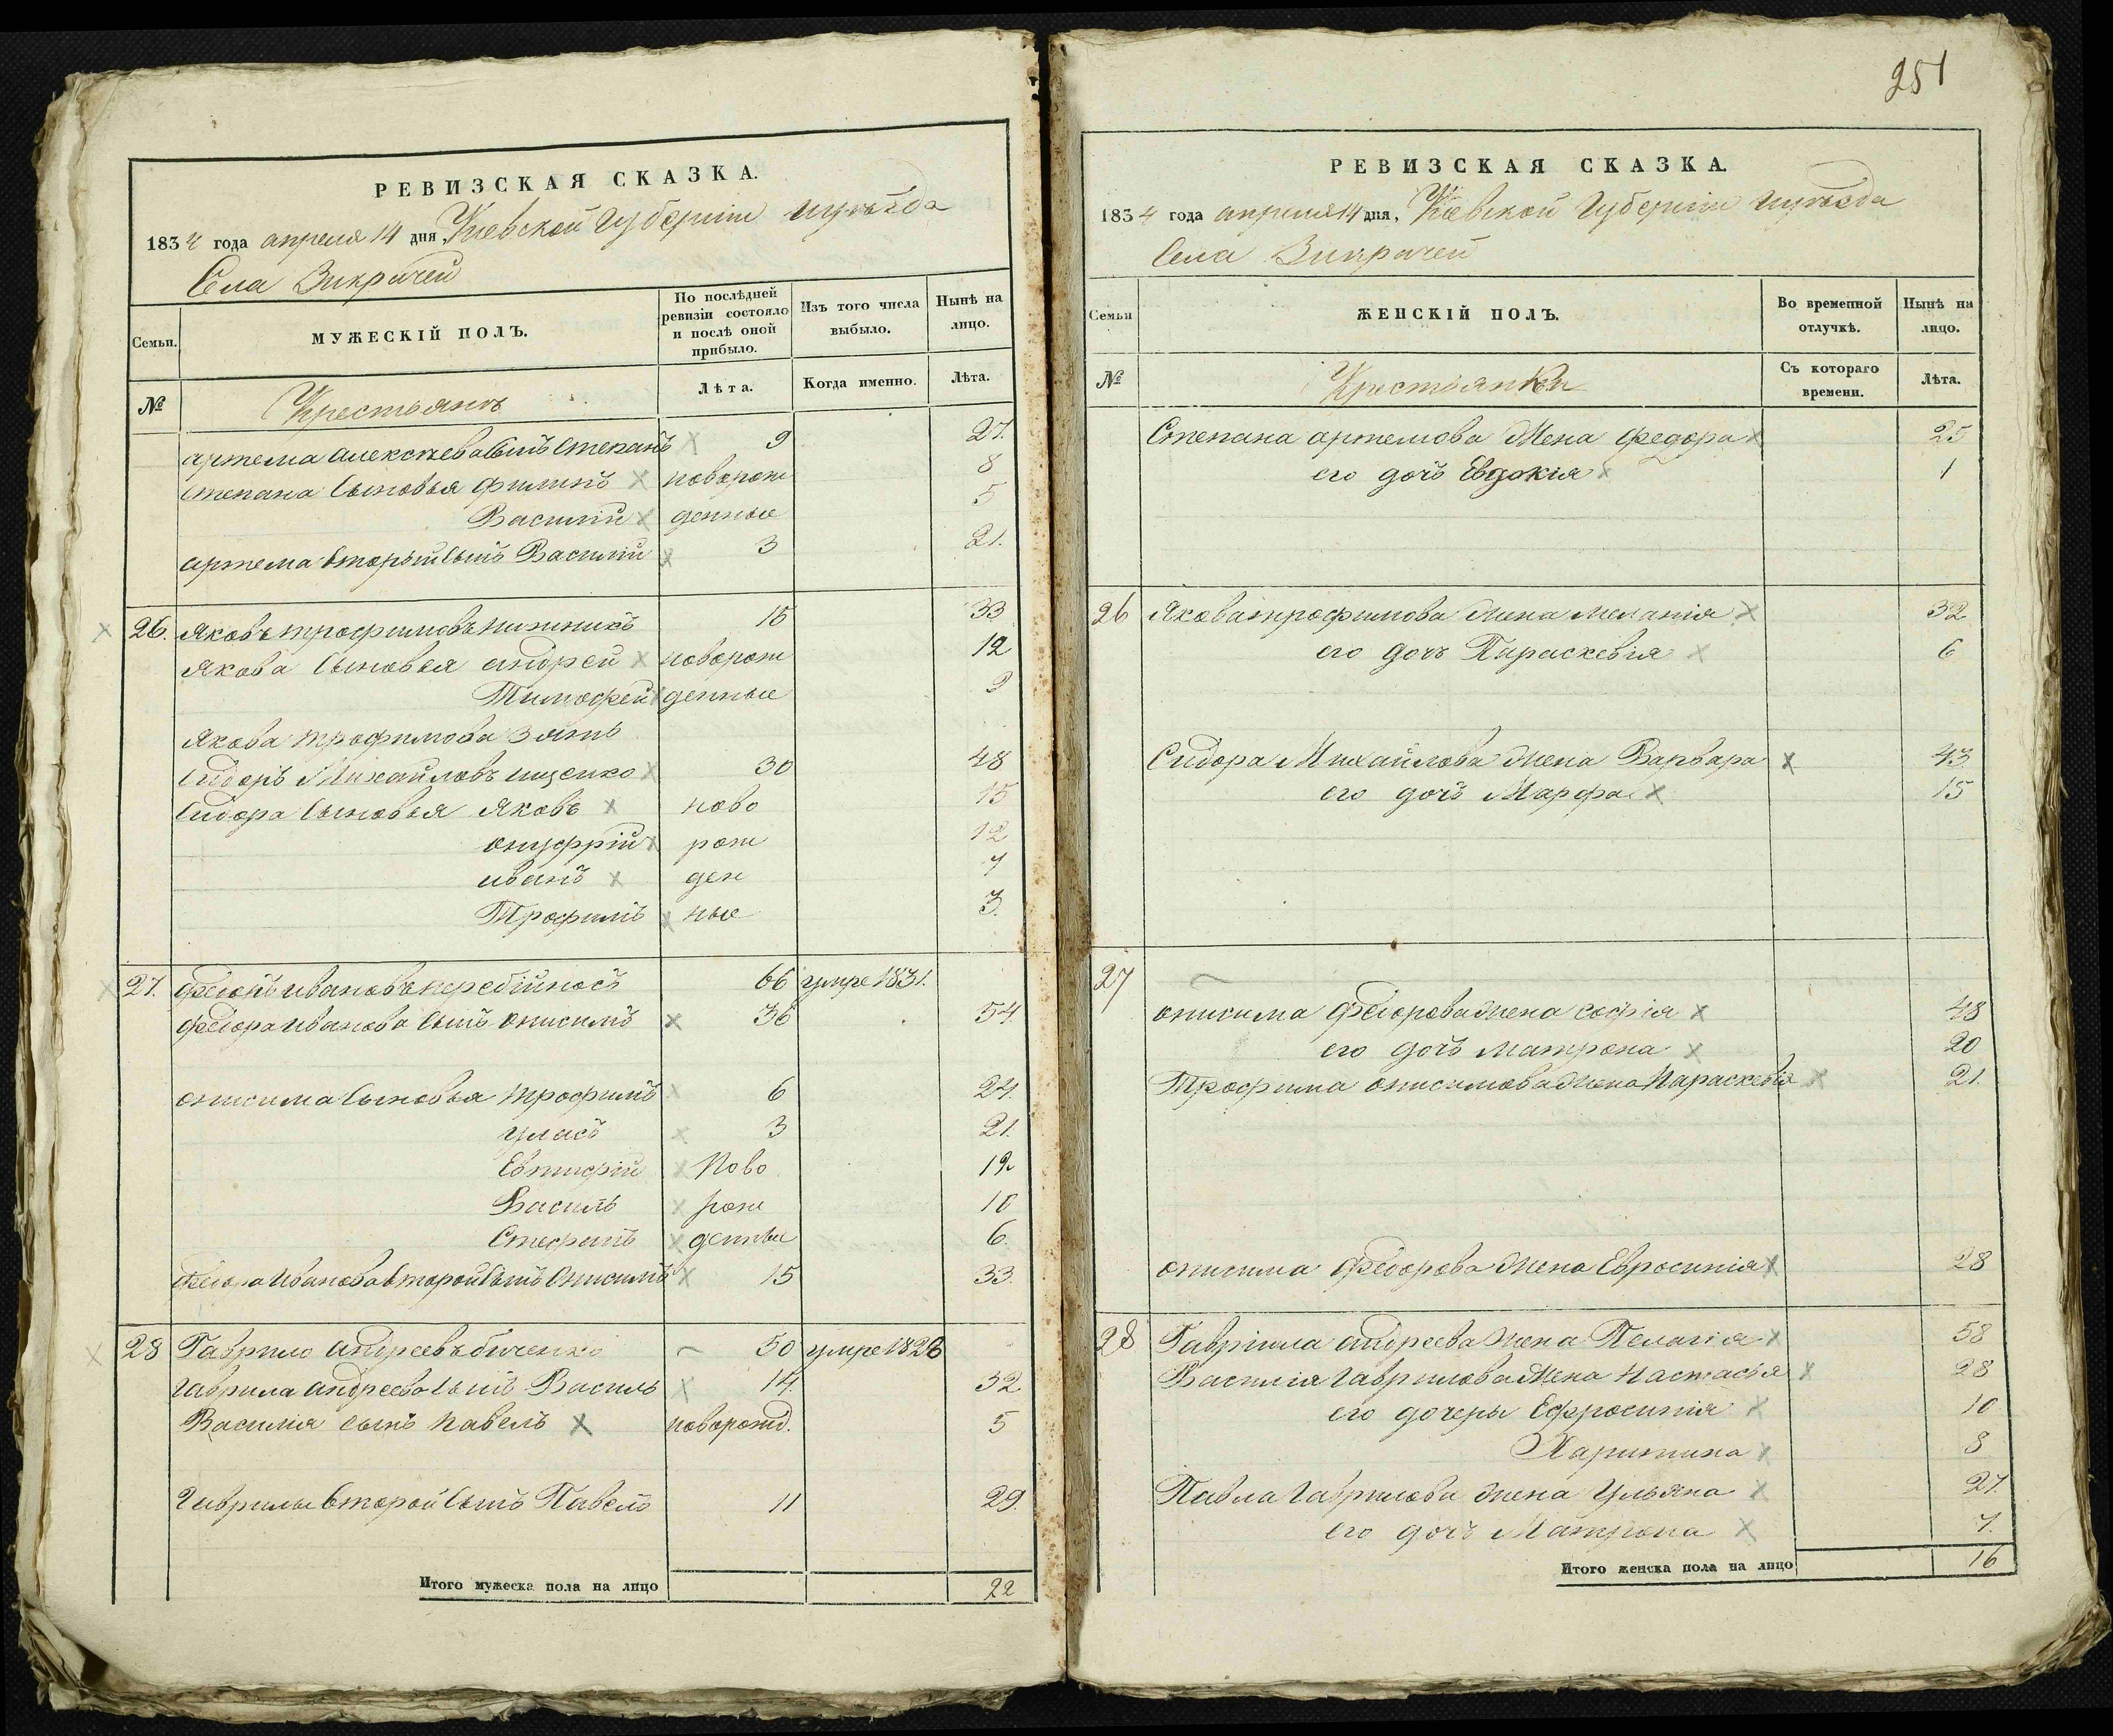 РЕВИЗСКАЯ СКАЗКА.
1834 года апреля 14 дня, Киевской Губернiи и уѣзда
Села Викрачей
Семьи. МУЖЕСКIЙ ПОЛЪ. По послѣдней ревизiи состояло и послѣ оной прибыло. Изъ того числа выбыло. Нынѣ на лицо.
№ Крестьянъ Лѣта. Когда именно. Лѣта.
артема алексѣева Сынъ Степанъ 9 27.
Степана Сыновья филипъ новорож 8
Василiй денные 5
артема вторый Сынъ Василiй 3 21.
26. Яковъ трофимовъ 15 33
Якова Сыновья андрей новорож 12
Тимофей денные 2
Якова трофимова Зять
Сидоръ Михайловъ ищенко 30 48
Сидора Сыновья Яковъ ново 15
онуфрiй рож 12
иванъ ден 7
Трофимъ ные 3.
27. Федоръ ивановъ 66 умре 1831.
Федора иванова Сынъ онисимъ 36 54
онисима Сыновья трофимъ 6 24.
уласъ 3 21.
Евтифiй Ново 12
Василь рож 10
Стефанъ денные 6.
Федора иванова второй Сынъ Онисимъ 15 33.
28 Гаврило андреевъ биченко 50 умре 1828
Гаврила андреева Сынъ Василь 14. 32
Василiя сынъ павелъ новорожд. 5
Гаврилы второй Сынъ Павелъ 11 29.
Итого мужеска пола на лицо 22
251
РЕВИЗСКАЯ СКАЗКА.
1834 года апреля 14 дня, Киевской Губернiи и уѣзда
Села Викрачей
Семьи ЖЕНСКIЙ ПОЛЪ. Во временной отлучкѣ. Нынѣ на лицо.
№ Крестьянки Съ котораго времени. Лѣта.
Степана артемова Жена федора 25
его дочь Евдокiя 1
26 Якова трофимова жена меланiя 32
его дочь Параскевiя 6
Сидора Михайлова жена Варвара 43
его дочь Марфа 15
27
онисима Федорова жена софiя 48
его дочь матрона 20
Трофима онисимова жена Параскевiя 21.
онисима Федорова жена Евросинiя 28
28 Гаврiила андреева жена Пелагiя 58
Василiя гаврилова Жена Настасья 28
его дочеры Ефросинiя 10
Харитина 8
Павла Гаврилова жена Ульяна 27.
его дочь Матрона 7.
Итого женска пола на лицо 16